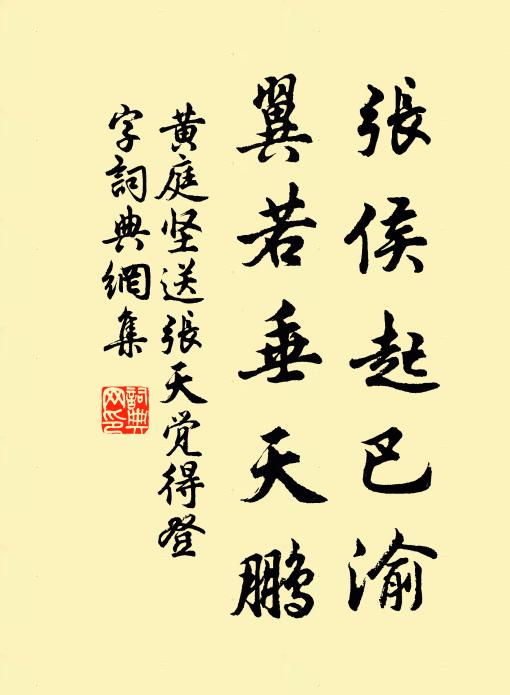 張侯起巴渝
翼若垂天鵬
黃庭坚送張天觉得登
字詞典網集
詞典網印